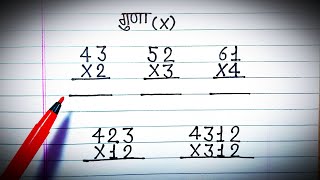 गुणा (x)
43 52 61
X2 X3 X4
423 4312
X12 X312